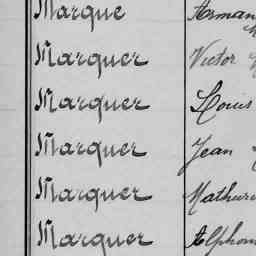 Marque Arman
Marquer Victor
Marquer Louis
Marquer Jean
Marquer Mathuri
Marquer Alphon